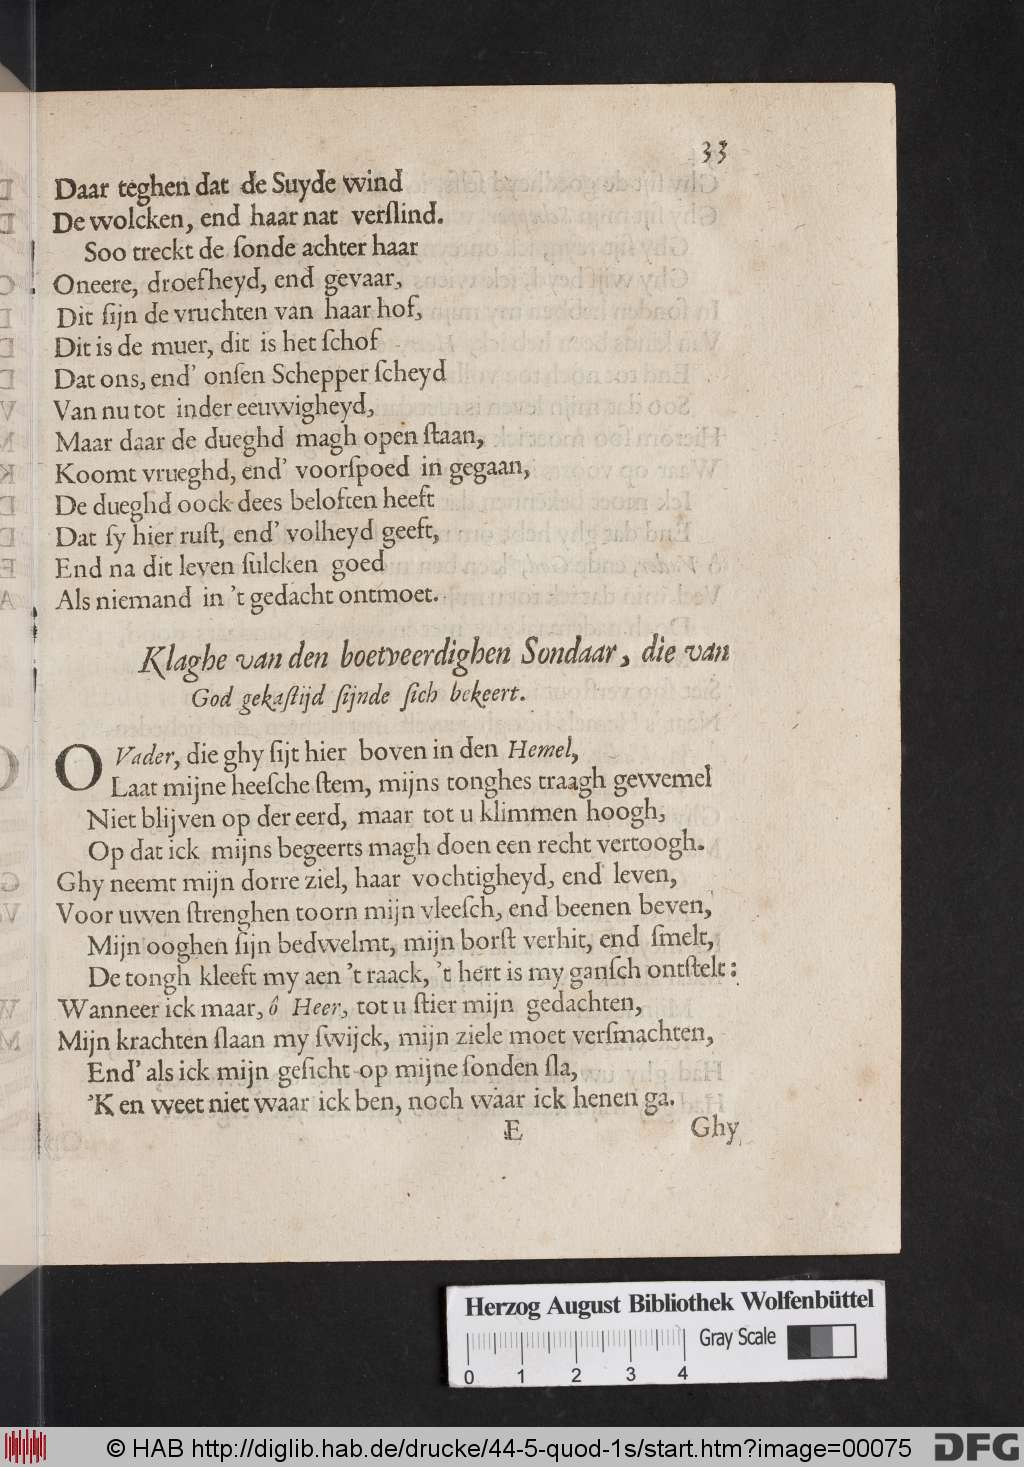 33
Daar teghen dat de Suyde wind
De wolcken, end haar nat verſlind.
Soo treckt de ſonde achter haar
Oneere, droefheyd, end gevaar,
Dit ſijn de vruchten van haar hof,
Dit is de muer, dit is het ſchof
Dat ons, end' onſen Schepper ſcheyd
Van nu tot inder eeuwigheyd,
Maar daar de dueghd magh open ſtaan,
Koomt vrueghd, end' voorſpoed in gegaan,
De dueghd oock dees beloften heeft
Dat ſy hier ruſt, end' volheyd geeft,
End na dit leven ſulcken goed
Als niemand in 't gedacht ontmoet.
Klaghe van den boetveerdighen Sondaar, die van
God gekaſtijd ſijnde ſich bekeert.
O Vader, die ghy ſijt hier boven in den Hemel,
Laat mijne heeſche ſtem, mijns tonghes traagh gewemel
Niet blijven op der eerd, maar tot u klimmen hoogh,
Op dat ick mijns begeerts magh doen een recht vertoogh.
Ghy neemt mijn dorre ziel, haar vochtigheyd, end leven,
Voor uwen ſtrenghen toorn mijn vleeſch, end beenen beven,
Mijn ooghen ſijn bedwelmt, mijn borſt verhit, end ſmelt,
De tongh kleeft my aen 't raack, 't hert is my ganſch ontſtelt:
Wanneer ick maar, ô Heer, tot u ſtier mijn gedachten,
Mijn krachten ſlaan my ſwijck, mijn ziele moet verſmachten,
End' als ick mijn geſicht op mijne ſonden ſla,
'K en weet niet waar ick ben, noch waar ick henen ga.
E Ghy
Herzog August Bibliothek Wolfenbüttel
Gray Scale
0 1 2 3 4
© HAB http://diglib.hab.de/drucke/44-5-quod-1s/start.htm?image=00075
DFG